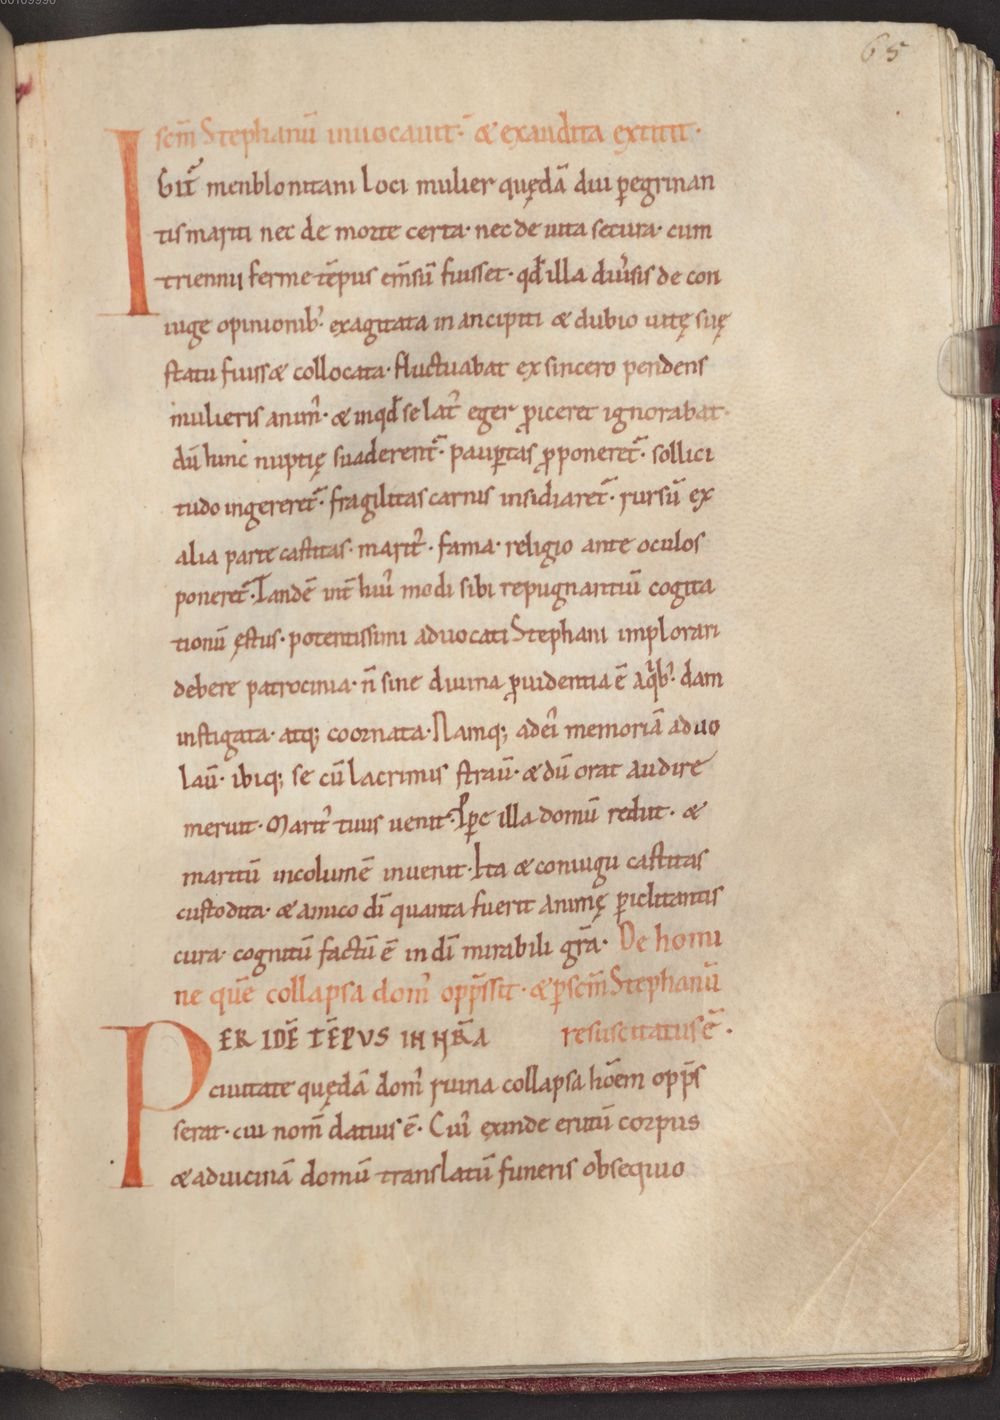 65
scm̄ Stephanū inuocauit· & exaudita extitit·
IGIT᷑ menblonitani loci mulier quędā diu ꝑegrinan
tis mariti nec de morte certa· nec de uita secura· cum
triennij ferme tēpus em̄sū fuisset· qđ illa diuͥsis de con
iuge opinionibꝰ exagitata in ancipiti & dubio uitę suę
statu fuiss& collocata· fluctuabat ex sincero pendens
mulieris animꝰ· & in qđ se latꝰ eger ꝓiceret ignorabat·
dū hinc nuptię suaderent᷑· pauꝑtas ꝓponeret᷑· sollici
tudo ingereret᷑· fragilitas carnis insidiaret᷑· rursū ex
alia parte castitas· maritꝰ· fama· religio ante oculos
poneret᷑· Tandē int̄ huiꝰ modi sibi repugnantiū cogita
tionū ęstus· potentissimi aduocati Stephani implorari
debere patrocinia· n̄ sine diuina ꝓuidentia ē a qͣbꝰdam
instigata· atq; coornata· Namq; ad eiꝰ memoriā aduo
lauͥ· ibiq; se cū lacrimis strauͥ· & dū orat audire
meruit· Maritꝰ tuus uenit· Ꝑpe illa domū rediit· &
maritū incolumē inuenit· Ita & coniugii castitas
custodita· & amico dī quanta fuerit animę ꝑiclitantis
cura· cognitū factū ē in dī mirabili gr̄a· De homi
ne quē collapsa domꝰ opp̄ssit· & ꝑ scm̄ Stephanū
PER IDĒ TĒPVS IN NR̄A resuscitatus ē·
ciuitate quędā domꝰ ruina collapsa hōem opp̄s
serat· cui nom̄ datiuus ē· Cuiꝰ exinde erutū corpus
& ad uicinā domū translatū funeris obsequio